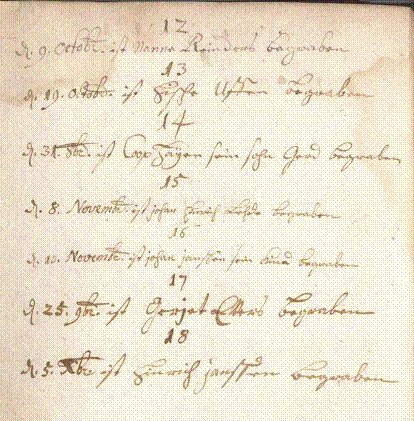 12
d. 9. Octobr. ist Nanna Reinders begraben
13
d. 19. Octobr. ist Uffen begraben
14
d. 31. 8br. ist Coop sein sohn Gerd begraben
15
d. 8. Novembr. ist johan Hinrich begraben
16
d. 10. Novembr. ist johan janssen sein Kind begraben
17
d. 25. 9br. ist Gerjet Eilers begraben
18
d. 5. Xbr. ist Hinrich janssen begraben